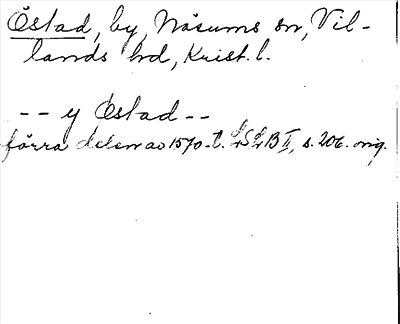 Östad, by, Näsums sn, Vil-
lands hd, Krist. l.
-- y Östad --
förra delen av 1570-t. LSLB II, s. 206. orig.